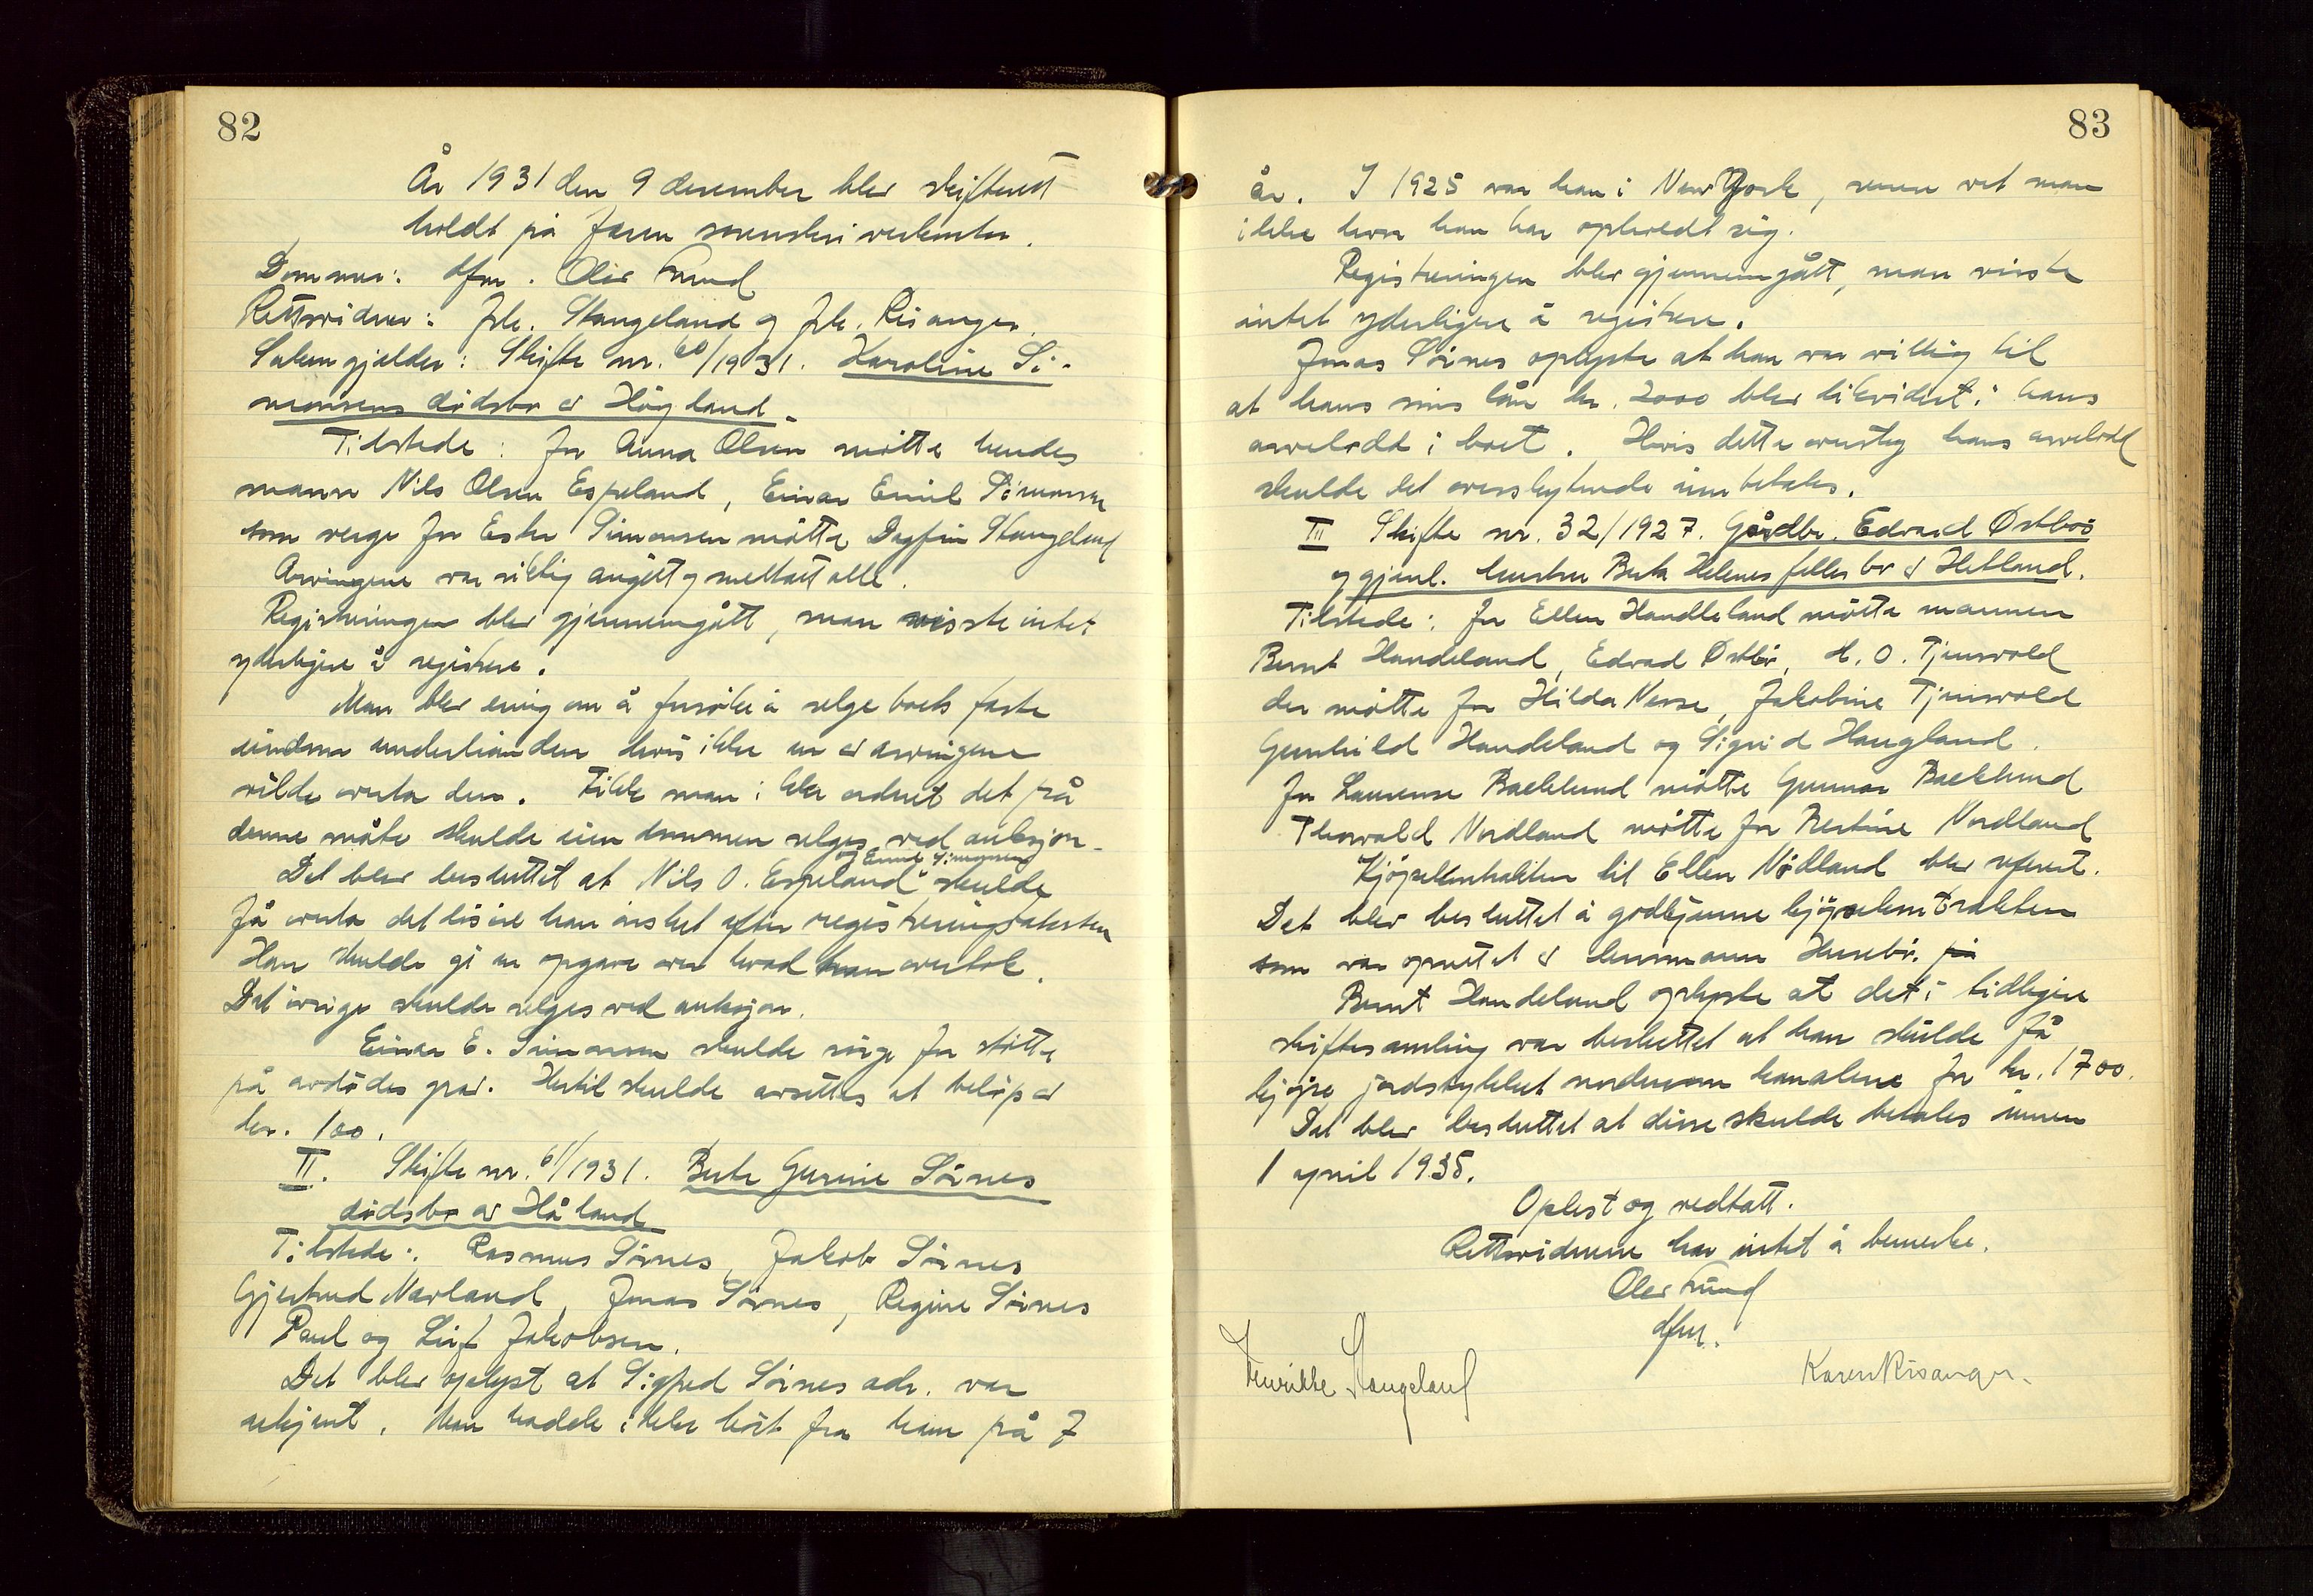 82
År 1931 den 9 desember blev skifterett
holdt på Jæren sorenskriverkontor.
Dommer: dfm. Olav Lund
Rettsvidner: frk. Stangeland og frk. Risanger.
Saken gjelder: Skifte nr. 60/1931. Karoline Si-
monsens dødsbo av Høgland.
Tilstede: for Anna Olsen møtte hendes
mann Nils Olsen Espeland, Einar Emil Simonsen
som verge for Ester Simonsen møtte Dagfin Stangeland
Arvingene var riktig angitt og mettatt alle.
Registreringen blev gjennemgått, man visste intet
yderligere å registrere.
Man blev enig om å forsøke å selge boets faste
eiendom underhånden hvis ikke en av arvingene
vilde overta den. Fikk man ikke ordnet det på
denne måte skulde eiendommen selges ved auksjon.
og Einar Simonsen
Det blev besluttet at Nils O. Espeland skulde
få overta det løsøre han ønsket efter registreringstaksten
Han skulde gi en opgave over hvad han overtok.
Det øvrige skulde selges ved auksjon.
Einar E. Simonsen skulde sørge for støtte
på avdødes grav. Hertil skulde avsettes et beløp av
kr. 100.
II. Skifte nr. 61/1931. Berte Gurine Sørnes
dødsbo av Håland
Tilstede: Rasmus Sørnes, Jakob Sørnes
Gjertrud Nærland, Jonas Sørnes, Regine Sørnes
Paul og Leif Jakobsen.
Det blev oplyst at Sigfred Sørnes adr. var
ukjent. Man hadde ikke hørt fra ham på 7
83
år. I 1925 var han i New York, senere vet man
ikke hvor han har opholdt sig.
Registreringen blev gjennemgått, man visste
intet yderligere å registrere.
Jonas Sørnes oplyste at han var villig til
at hans lån kr. 2000 blev likvidert i hans
arvelodd i boet. Hvis dette oversteg hans arvelodd
skulde det overskytende innbetales.
III Skifte nr. 32/1927. Gårdbr. Edvard Østbøs
og gjenl. hustru Berta Helenes fellesbo av Hetland.
Tilstede: for Ellen Handeland møtte mannen
Bernt Handeland, Edvard Østbø, H. O. Tjensvold
der møtte for Hilda Nesse, Jakobine Tjensvold
Gunhild Handeland og Sigrid Haugland.
for Laurense Baeklund møtte Gunnar Baeklund
Thorvald Nordland møtte for Kerstine Nordland
Kjøpekontrakten til Ellen Nødland blev referert.
Det blev besluttet å godkjenne kjøpekontrakten
som var oprettet av lensmann Husebø.
Bernt Handeland oplyste at det i tidligere
skiftesamling var besluttet at han skulde få
kjøpe jordstykket nordenom kanalene for kr. 1700.
Det blev besluttet at disse skulde betales innen
1 april 1935.
Oplest og vedtatt.
Rettsvidnene har intet å bemerke.
Olav Lund
dfm.
Henrikke Stangeland
Karen Risanger.